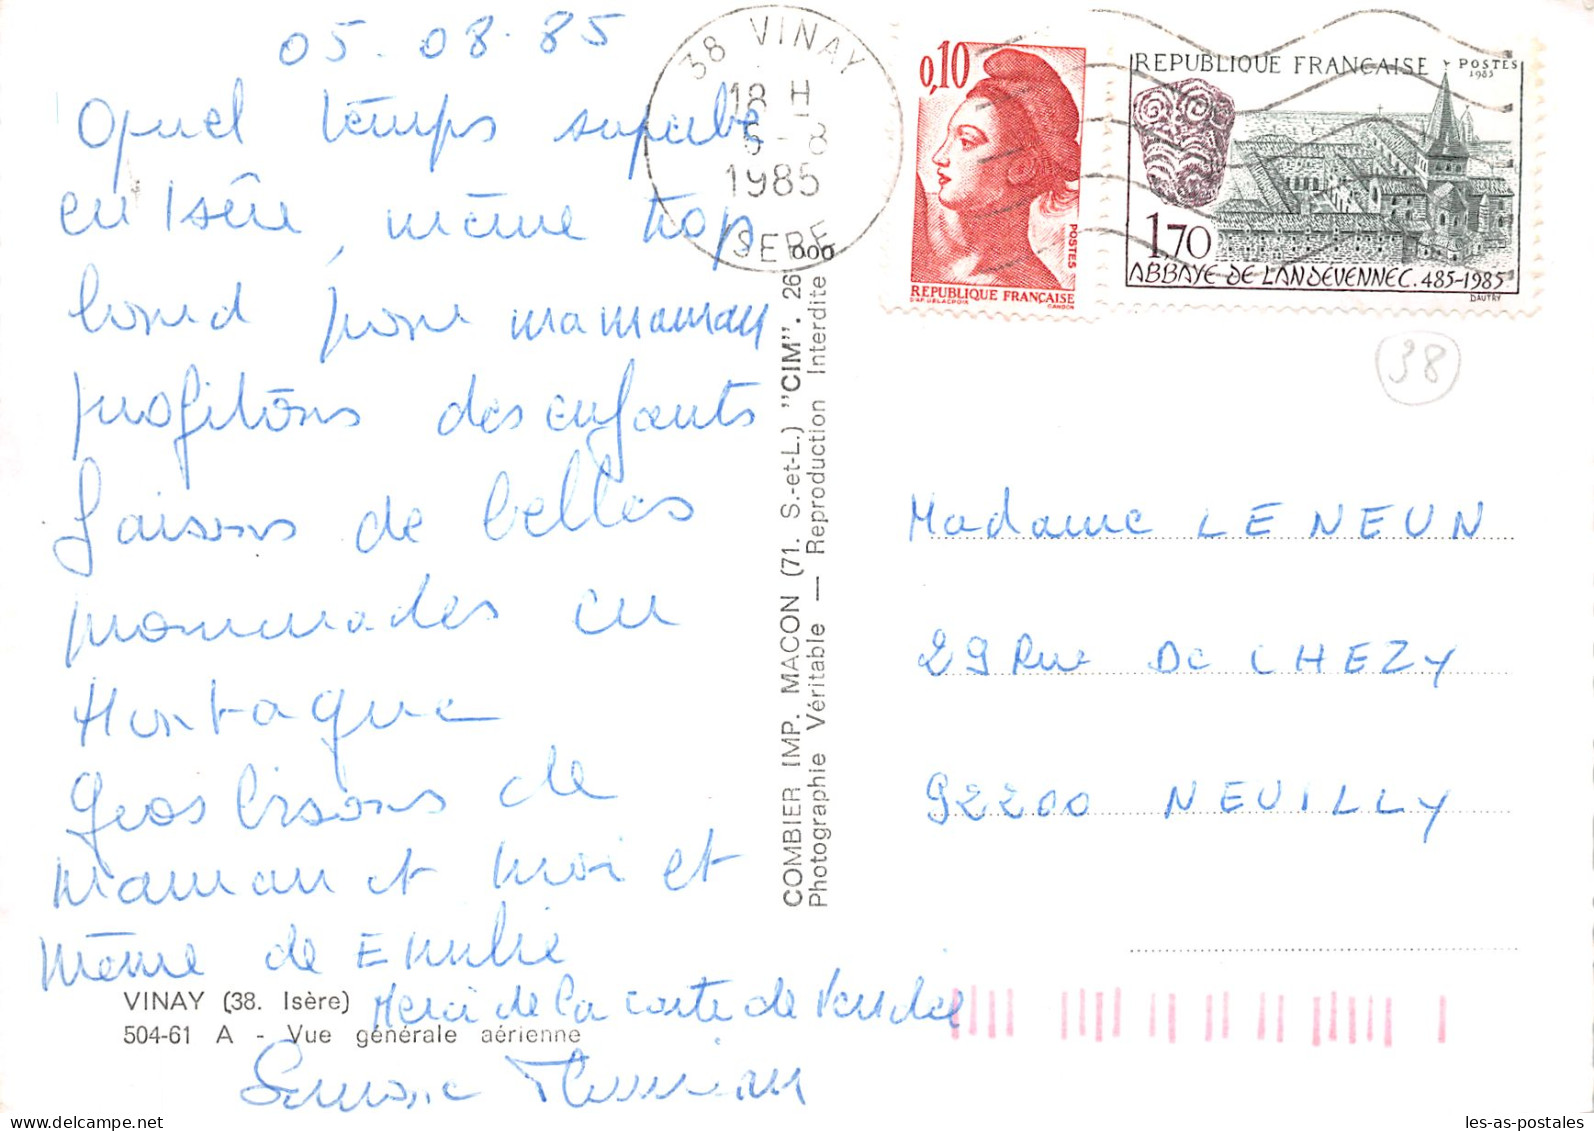 05.08.85
Quel temps superbe
en Isère, même trop
lourd pour ma maman
profitons des enfants
faisons de belles
promenades en
Montagne
Gros bisons de
Maman et moi et
même de Emilie
Merci de la carte de Vendée
38 VINAY
18 H
6-8
1985
ISERE
0,10
POSTES
REPUBLIQUE FRANÇAISE
D'AP. DELACROIX GANDON
REPUBLIQUE FRANÇAISE POSTES
1985
1,70
ABBAYE DE LANDEVENNEC. 485-1985
DAUTRY
38
COMBIER IMP. MACON (71. S.-et-L.) "CIM". 26 000
Photographie Véritable — Reproduction Interdite
Madame LE NEUN
29 Rue De CHEZY
92200 NEUILLY
VINAY (38. Isère)
504-61 A - Vue générale aérienne
les-as-postales